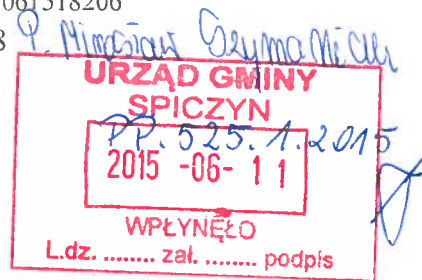 061518206
8 P. Mirosław Szymański
URZĄD GMINY
SPICZYN
PP. 525.1.2015
2015 -06- 11
WPŁYNĘŁO
L.dz. ........ zał. ........ podpis